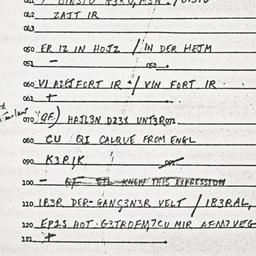 012 ZAJT IR
013
050 ER IZ IN HOJZ / IN DER HEJM
051 —
060 VIAZEJ FORT IR · / VIN FORT IR ·
061 +
070 QF.) HAJL3N D23X UNT3R071
080 CU QI CALQUE FROM ENGL
090 K3R,K
100 — QI STL KNEW THIS EXPRESSION
110 IB3R DER-GANG3N3R VELT / IB3RAL,
120 EPIS HOT · G3TROFM7CU MIR AFM7VEG
121 +